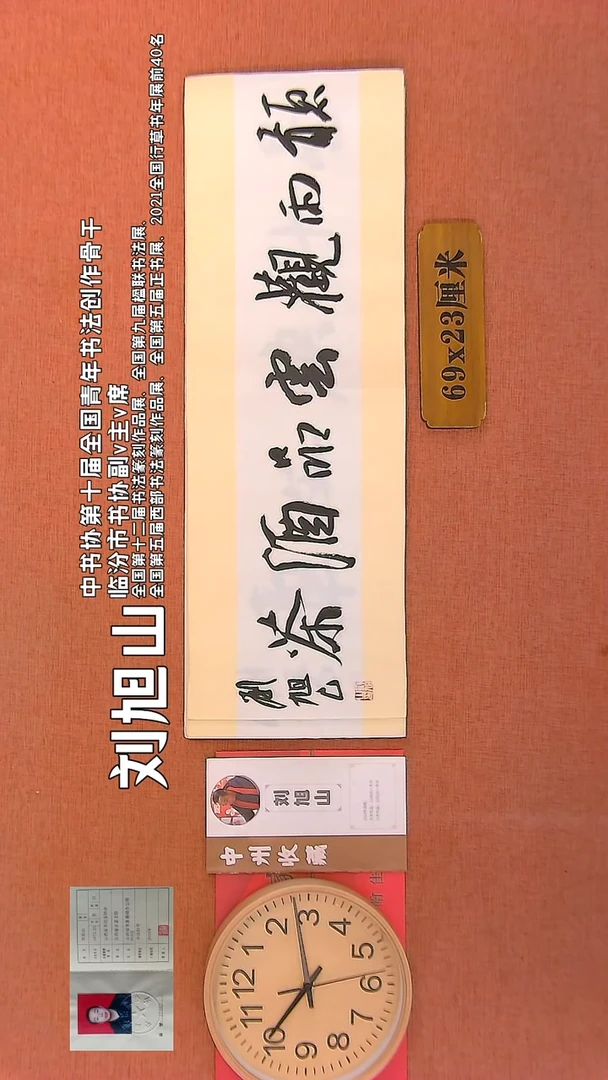 刘旭山
中书协第十届全国青年书法创作骨干
临汾市书协副v主v席
全国第十二届书法篆刻作品展、全国第九届楹联书法展、
全国第五届西部书法篆刻作品展、全国第五届正书展、2021全国行草书年展前40名
聽雨觀雲品酒茶
刘旭山
69x23厘米
中州收藏
刘旭山
12
1
2
3
4
5
6
7
8
9
10
11